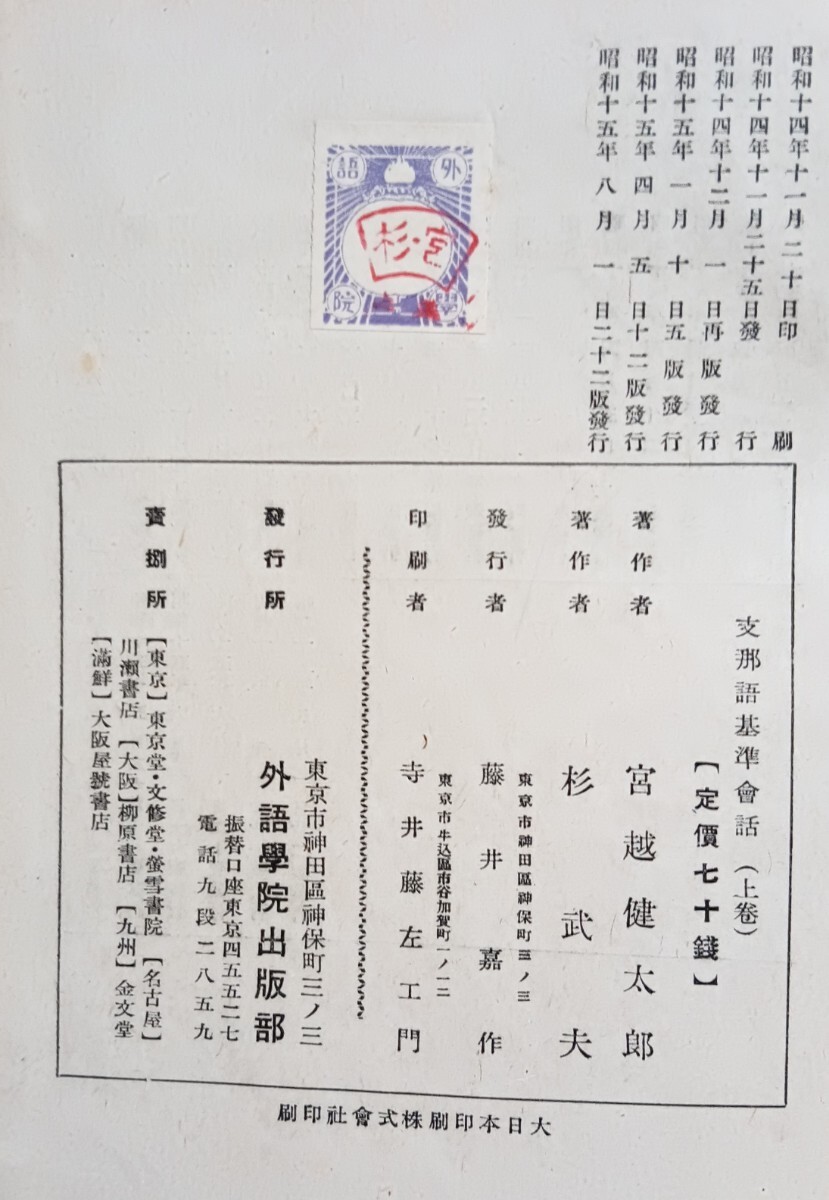 昭和十四年十一月二十日印刷
昭和十四年十一月二十五日發行
昭和十四年十二月一日再版發行
昭和十五年一月十日五版發行
昭和十五年四月五日十二版發行
昭和十五年八月一日二十二版發行
外語
學院
宮・杉
支那語基準會話(上卷)
【定價七十錢】
著作者 宮越健太郎
著作者 杉武夫
東京市神田區神保町三ノ三
發行者 藤井嘉作
東京市牛込區市谷加賀町一ノ一二
印刷者 寺井藤左工門
東京市神田區神保町三ノ三
發行所 外語學院出版部
振替口座東京四五五二七
電話九段二八五九
賣捌所 【東京】東京堂・文修堂・螢雪書院 【名古屋】
川瀬書店 【大阪】柳原書店 【九州】金文堂
【滿鮮】大阪屋號書店
大日本印刷株式會社印刷